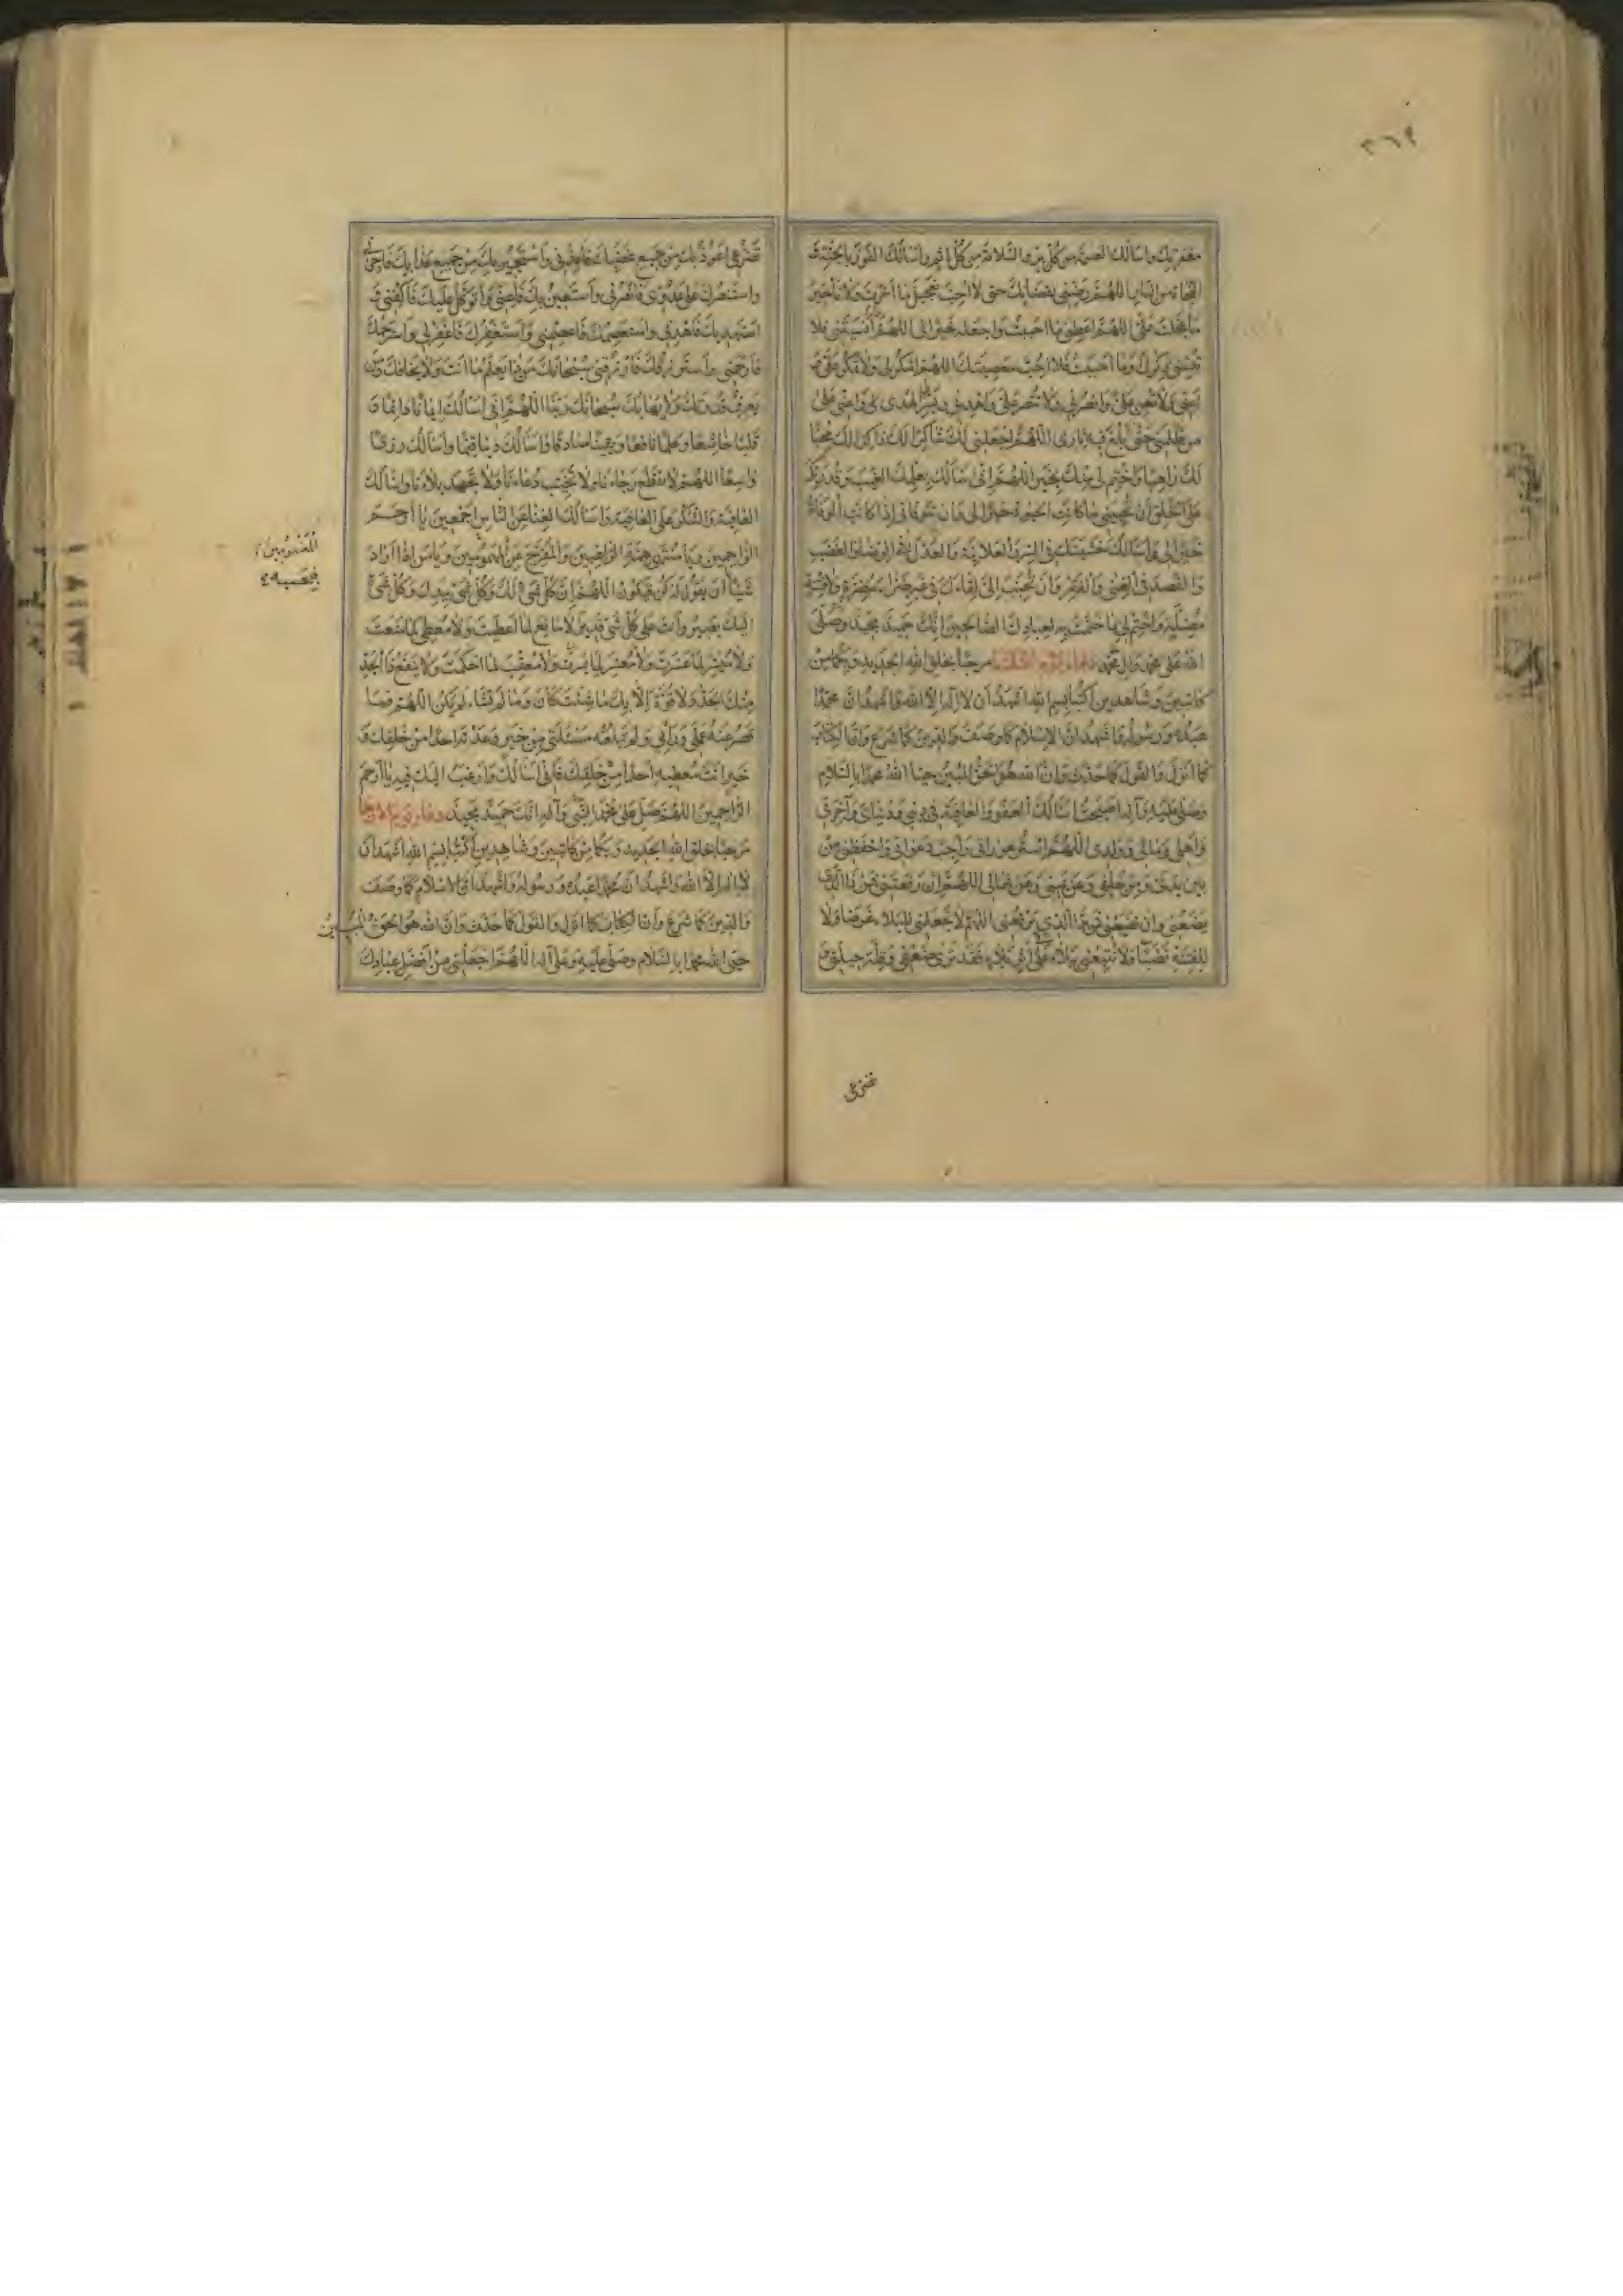 ٣٦٩
مغفرتك واسألك الغنيمة من كل بر والسلامة من كل اثم واسألك الفوز بالجنة و
النجاة من النار اللهم رضني بقضائك حتى لا احب تعجيل ما اخرت ولا تأخير
ما عجلت علي اللهم اعطني ما احببت واجعله خيرا لي اللهم ما انسيتني فلا
تنسني ذكرك وما احببت فلا احب معصيتك اللهم امكر لي ولا تمكر علي و
اعني ولا تعن علي وانصرني ولا تنصر علي واهدني ويسر الهدى لي واعني على
من ظلمني حتى ابلغ فيه ثاري اللهم اجعلني لك شاكرا لك ذاكرا لك محبا
لك راهبا واختم لي منك بخير اللهم اني اسألك بعلمك الغيب وقدرتك
على الخلق ان تحييني ما كانت الحيوة خيرا لي وان تتوفاني اذا كانت الوفاة
خيرا لي واسألك خشيتك في السر والعلانية والعدل في الرضا والغضب
والقصد في الغنى والفقر وان تحبب الي لقاءك في غير ضراء مضرة ولا فتنة
مضلة واختم لي بما ختمت به لعبادك الصالحين انك حميد مجيد وصلى
الله على محمد وال محمد دعاء يوم الثلثا مرحبا بخلق الله الجديد وبكما من
كاتبين وشاهدين اكتبا بسم الله اشهد ان لا اله الا الله واشهد ان محمدا
عبده ورسوله واشهد ان الاسلام كما وصف والدين كما شرع وان الكتاب
كما انزل والقول كما حدث وان الله هو الحق المبين حيا الله محمدا بالسلام
وصلى عليه وآله اصبحت اسألك العفو والعافية في ديني ودنياي وآخرتي
واهلي ومالي وولدي اللهم استر عوراتي واجب دعواتي واحفظني من
بين يدي ومن خلفي وعن يميني وعن شمالي اللهم ان رفعتني فمن ذا الذي
يضعني وان تضعني فمن ذا الذي يرفعني اللهم لا تجعلني للبلاء غرضا ولا
للفتنة نصبا ولا تتبعني ببلاء على اثر بلاء فقد ترى ضعفي وقلة حيلتي و
تضرعي
تضرعي اعوذ بك من جميع غضبك فاعذني واستجير بك من جميع عذابك فاجرني
واستنصرك على عدوي فانصرني واستعين بك فاعني واتوكل عليك فاكفني و
استهديك فاهدني واستعصمك فاعصمني واستغفرك فاغفر لي واسترحمك
فارحمني واسترزقك فارزقني سبحانك من ذا يعلم ما انت ولا يخافك ومن
يعرف قدرتك ولا يهابك سبحانك ربنا اللهم اني اسألك ايمانا دائما و
قلبا خاشعا وعلما نافعا ويقينا صادقا واسألك دينا قيما واسألك رزقا
واسعا اللهم لا تقطع رجاءنا ولا تخيب دعاءنا ولا تجهد بلاءنا واسألك
العافية والشكر على العافية واسألك الغنا عن الناس اجمعين يا ارحم
الراحمين ويا منتهى همة الراغبين والمفرج عن المهمومين ويا من اذا اراد
شيئا ان يقول له كن فيكون اللهم ان كل شيء لك وكل شيء بيدك وكل شيء
اليك يصير وانت على كل شيء قدير لا مانع لما اعطيت ولا معطي لما منعت
ولا ميسر لما عسرت ولا معسر لما يسرت ولا معقب لما حكمت ولا ينفع ذا الجد
منك الجد ولا قوة الا بك ما شئت كان وما لم تشاء لم يكن اللهم فما
قصر عنه عملي ورأيي ولم تبلغه مسئلتي من خير وعدته احدا من خلقك و
خير انت معطيه احدا من خلقك فاني اسألك وارغب اليك فيه يا ارحم
الراحمين اللهم صل على محمد النبي وآله انك حميد مجيد دعاء يوم الاربعا
مرحبا بخلق الله الجديد وبكما من كاتبين وشاهدين اكتبا بسم الله اشهد ان
لا اله الا الله واشهد ان محمدا عبده ورسوله واشهد ان الاسلام كما وصف
والدين كما شرع وان الكتاب كما انزل والقول كما حدث وان الله هو الحق المبين
حيى الله محمدا بالسلام وصلى عليه وعلى آله اللهم اجعلني من افضل عبادك